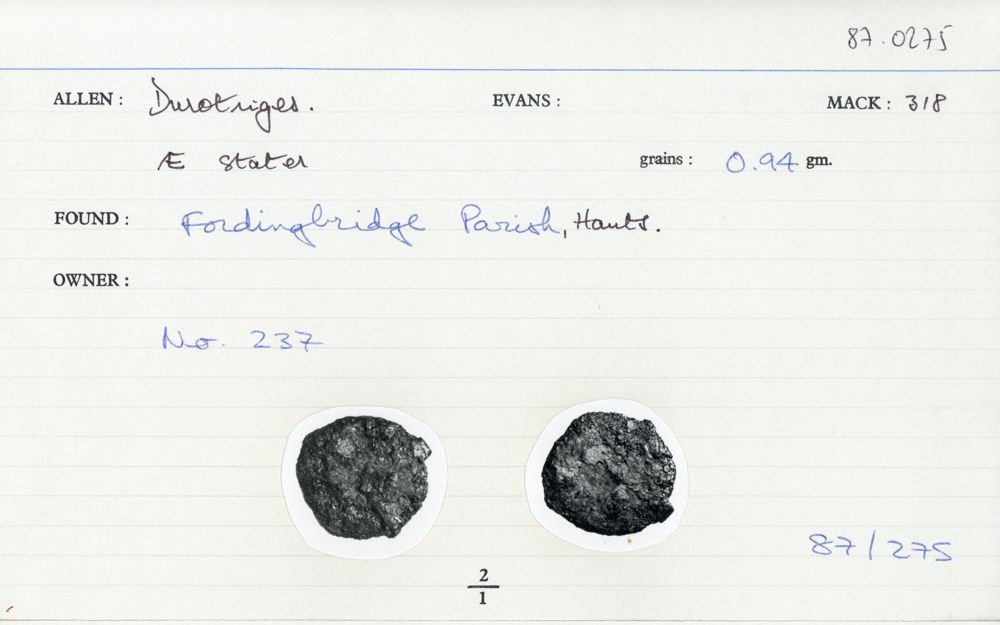 87.0275
ALLEN : Durotriges. EVANS : MACK : 318
Æ stater grains : 0.94 gm.
FOUND : Fordingbridge Parish, Hants.
OWNER :
No. 237
87/275
2
1